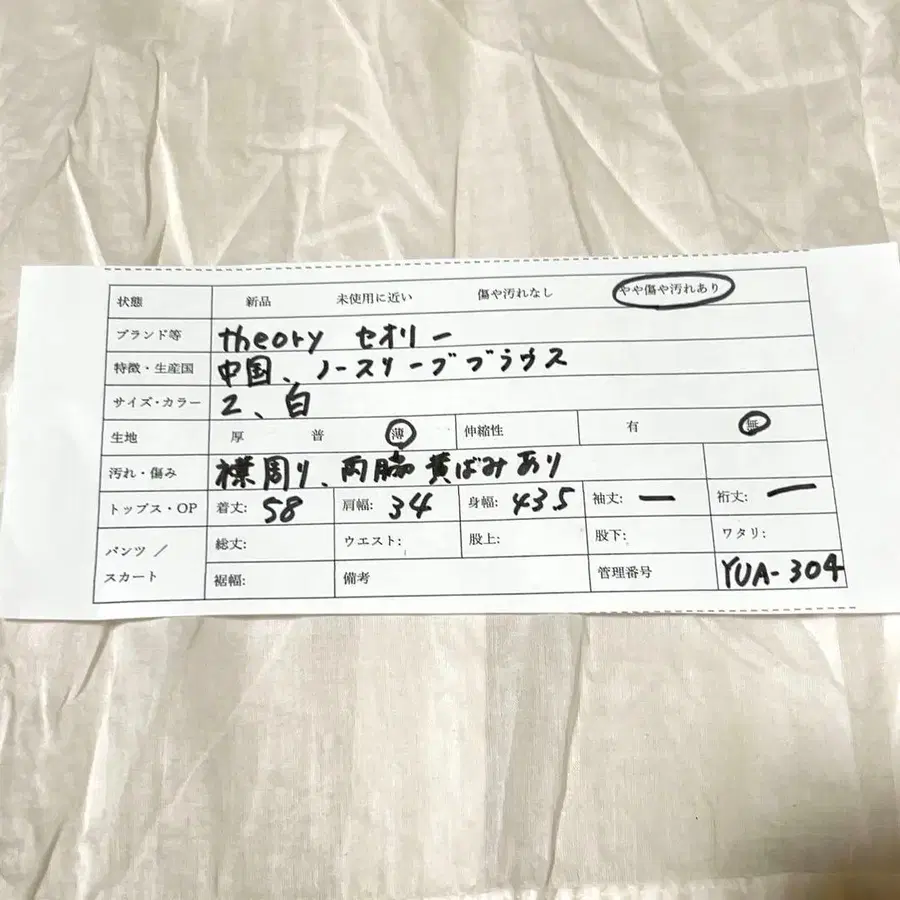 状態 新品 未使用に近い 傷や汚れなし やや傷や汚れあり
ブランド等 theory セオリー
特徴・生産国 中国、ノースリーブブラウス
サイズ・カラー 2、白
生地 厚 普 薄 伸縮性 有 無
汚れ・傷み 襟周り、両脇黄ばみあり
トップス・OP 着丈: 58 肩幅: 34 身幅: 43.5 袖丈: ー 裄丈: ー
パンツ／スカート 総丈: ウエスト: 股上: 股下: ワタリ:
裾幅: 備考 管理番号 YUA-304